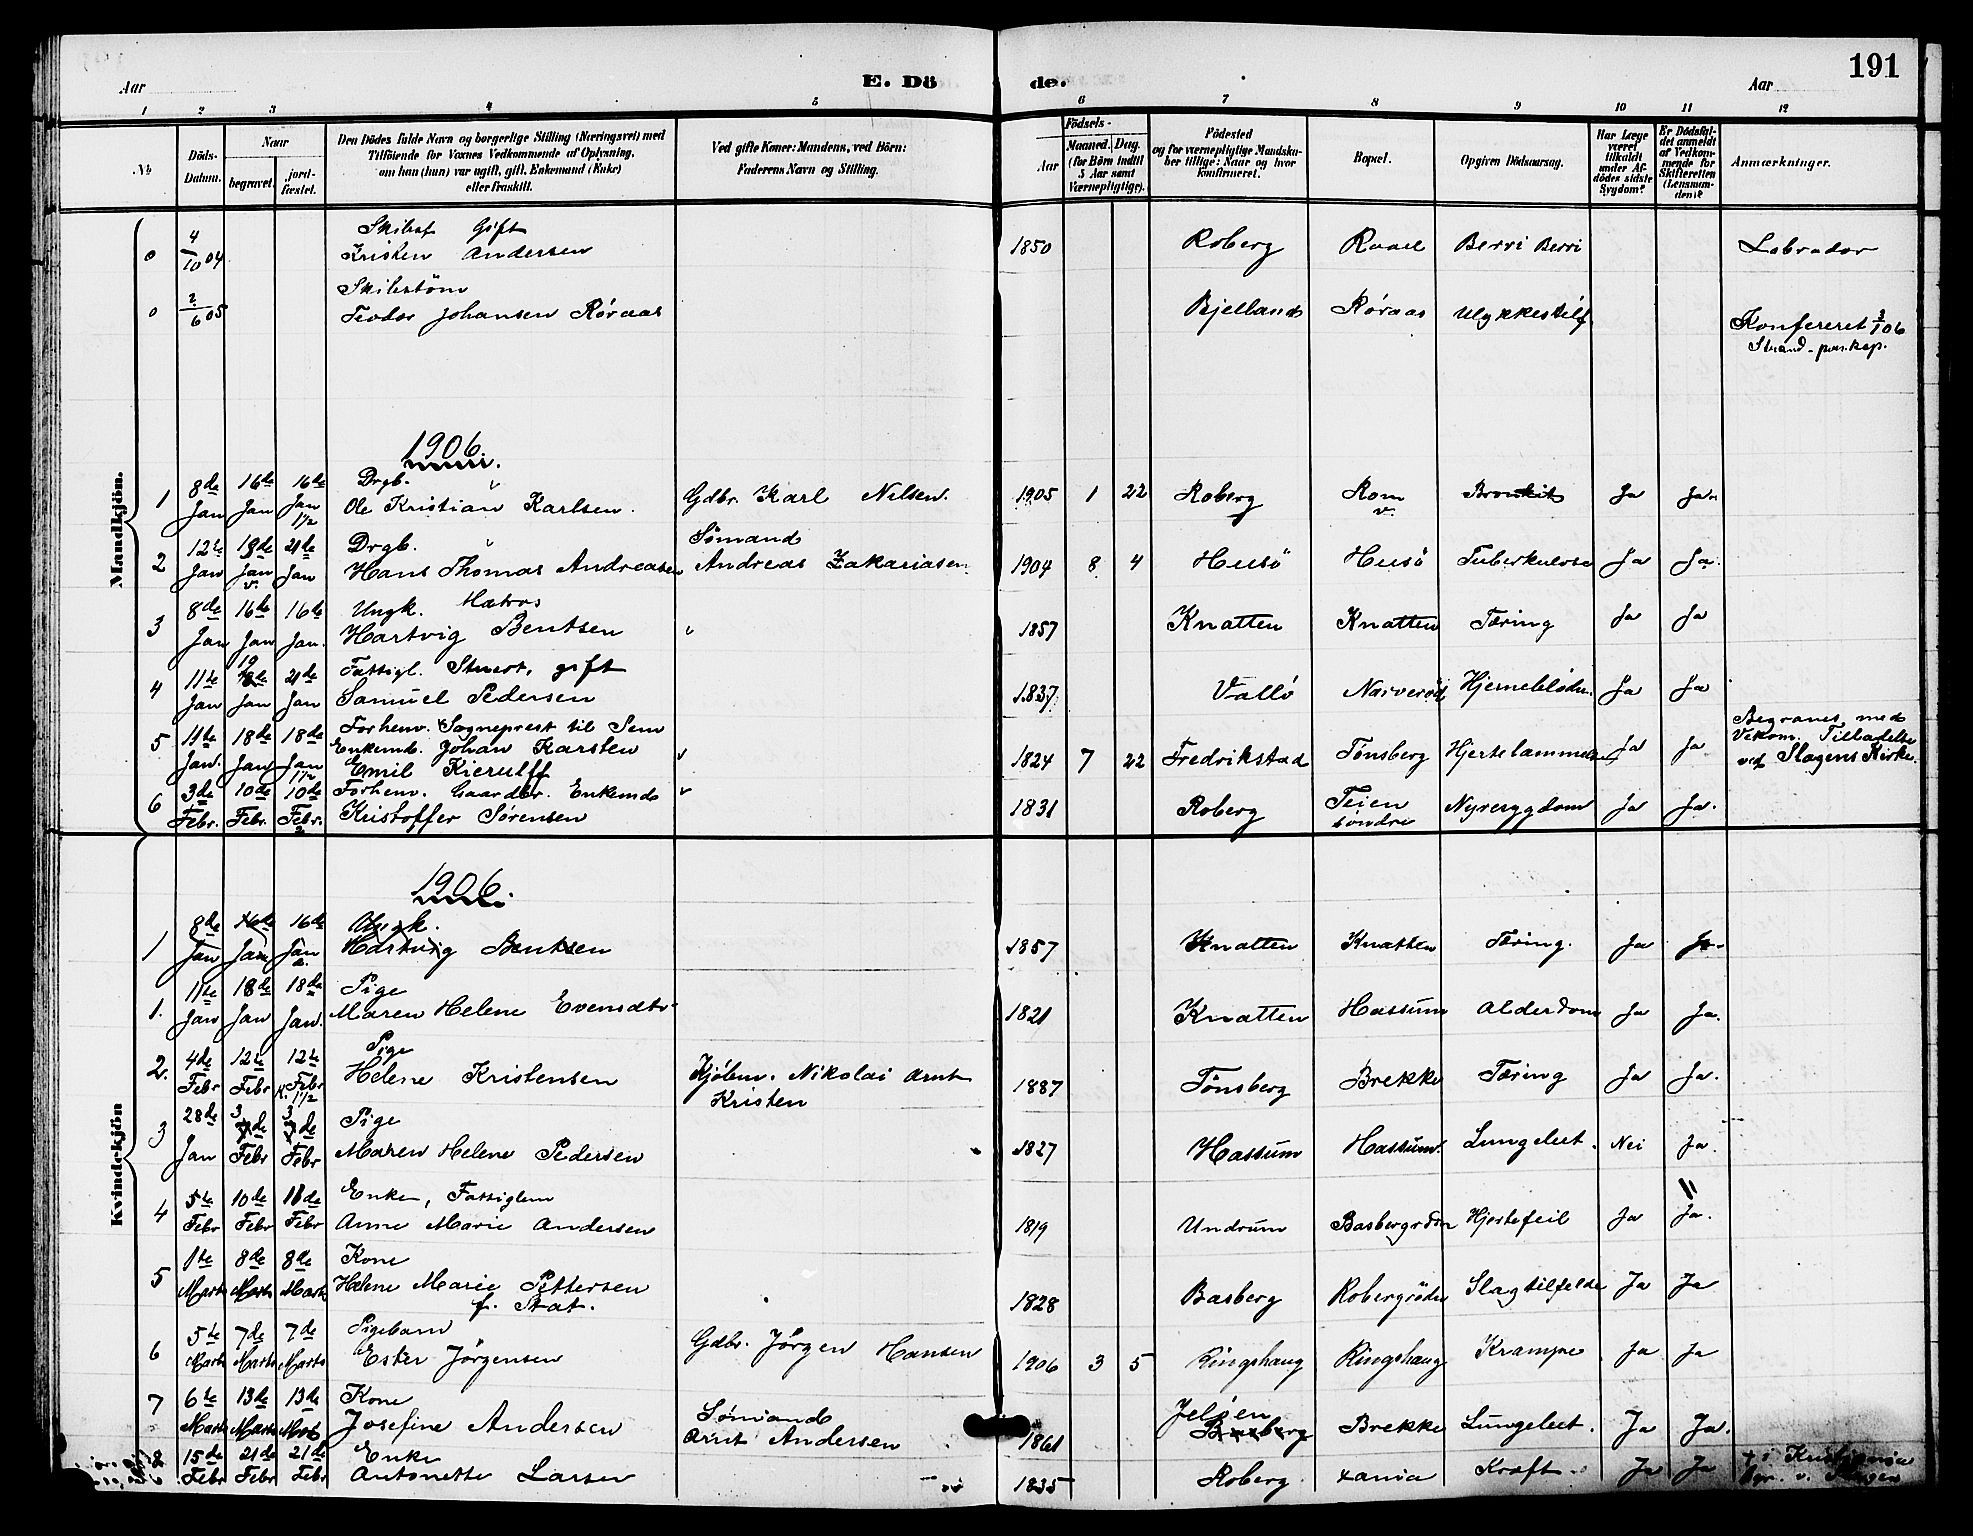 191
Aar
E. Dö
de.
Aar
1 2 3 4 5 6 7 8 9 10 11 12
No
Döds-Datum.
Naar
begravet.
jord-fæstet.
Den Dödes fulde Navn og borgerlige Stilling (Næringsvei) med
Tilföiende for Voxnes Vedkommende af Oplysning,
om han (hun) var ugift, gift, Enkemand (Enke)
eller fraskilt.
Ved gifte Koner: Mandens, ved Börn:
Faderens Navn og Stilling.
Födsels-
Aar
Maaned. Dag.
(for Börn indtil
5 Aar samt
Værnepligtige).
Födested
og for værnepligtige Mandska-
ber tillige: Naar og hvor
konfirmeret.
Bopæl.
Opgiven Dödsaarsag.
Har Læge
været
tilkaldt
under Af-
dödes sidste
Sygdom?
Er Dödsfal-
det anmeldt
af Vedkom-
mende for
Skifteretten
(Lensman-
den)?
Anmærkninger.
Mandkjön.
Gift
0 4/10 04 Kristen Andersen 1850 Roberg Berri Berri Labrador
0 2/6 05 Teodor Johansen Röraas Bjelland Röraas Ulykkestilf
Konfereret 3/1 06
1906
Drgb.
1 8de Jan 16de Jan 16de Jan Ole Kristian Karlsen. Gdbr. Karl Nilsen. 1905 1 22 Roberg Rom Bronkit Ja Ja
Drgb. Sömand
2 12te Jan 18de Jan 21de Jan Hans Thomas Andreasen Andreas Zakariasen 1904 8 4 Husö Husö Tuberkulose Ja Ja.
Ungk. Matros
3 8de Jan 16de Jan 16de Jan. Hartvig Bentsen 1857 Knatten Knatten Tæring Ja Ja
Fattigl. gift
4 11te Jan 19 18de Jan 21de Jan Samuel Pedersen 1837 Vallö Narveröd Ja Ja
Forhenv. Sogneprest til Sem
5 11te Jan. 18de Jan 18de Jan Enkemd. Johan Karsten 1824 7 22 Fredrikstad Tönsberg Ja Ja
Emil Kierulff
Begraves med
Vekom. Tilladelse
ved Slagens Kirke.
Forhenv. Gaardbr. Enkemd
6 3de Febr. 10de Febr. 10de Febr. Kristoffer Sörensen 1831 Roberg Teien söndre Nyresygdom Ja Ja.
Kvindekjön
1906.
Ungk.
1 8de Jan 16de Jan 16de Jan Hartvig Bentsen 1857 Knatten Knatten Tæring. Ja Ja
Pige
1. 11te Jan 18de Jan 18de Jan. Maren Helene Evensdtr 1821 Knatten Hassum Alderdom Ja Ja.
Pige
2. 4de Febr 12te Febr 12te Febr Helene Kristensen Kjöbm. Nikolai Arnt Kristen 1887 Tönsberg Brekke Tæring Ja Ja.
Pige
3 28de Jan 3de Febr 3de Febr Maren Helene Pedersen 1827 Hassum Hassum. Lungebet. Nei Ja.
Enke, Fattiglem
4 5te Febr 10de Febr 11de Febr Anne Marie Andersen 1819 Undrum Hjertefeil Ja Ja.
Kone
5 1te Marts 8de Marts 8de Marts Helene Marie Pettersen 1828 Basberg Slagtilfelde Ja Ja
f. Stat.
Pigebarn
6 5te Marts 7de Marts 7de Marts Ester Jörgensen Gdbr. Jörgen Hansen 1906 3 5 Ringshaug Ringshaug Krampe Ja Ja
Kone
7 6te Marts 13de Marts 13de Marts Josefine Andersen Sömand Arnt Andersen 1861 Jelöen Basberg Brekke Lungebet. Ja Ja.
Enke
8 15de Febr 21de Febr 21de Febr Antonette Larsen 1835 Roberg Kræft Ja Ja
† i Kristiania